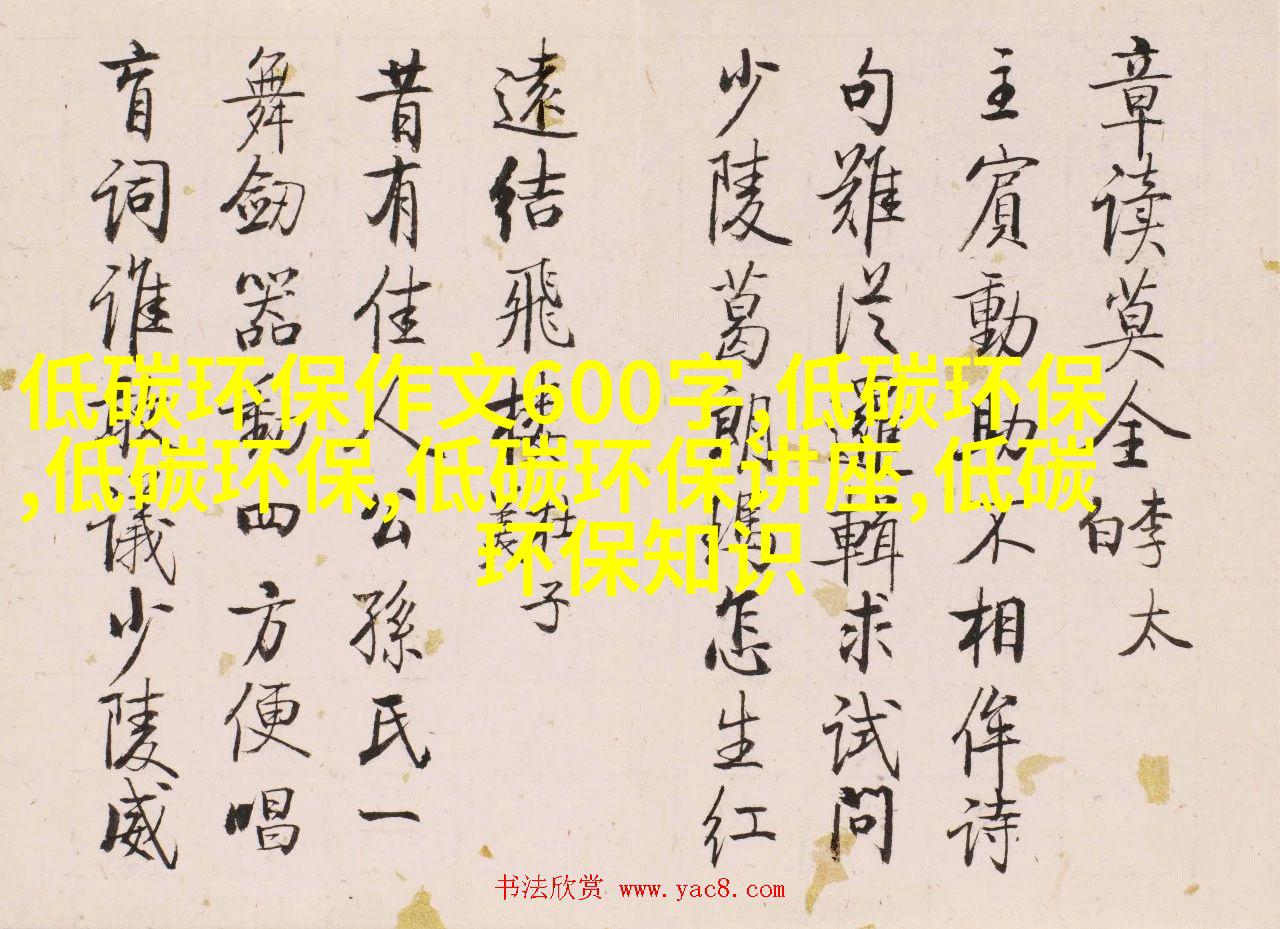 章读莫全李太白
主賓動助不相侔诗
句難從邏輯求试問
少陵葛朗瑪怎生红
遠结飛楼杜子美
昔有佳人公孫氏一
舞劒器動四方便唱
盲词谁敢議少陵威
低碳环保作文600字,低碳环保
,低碳环保,低碳环保讲座,低碳
环保知识
书法欣赏 www.yac8.com